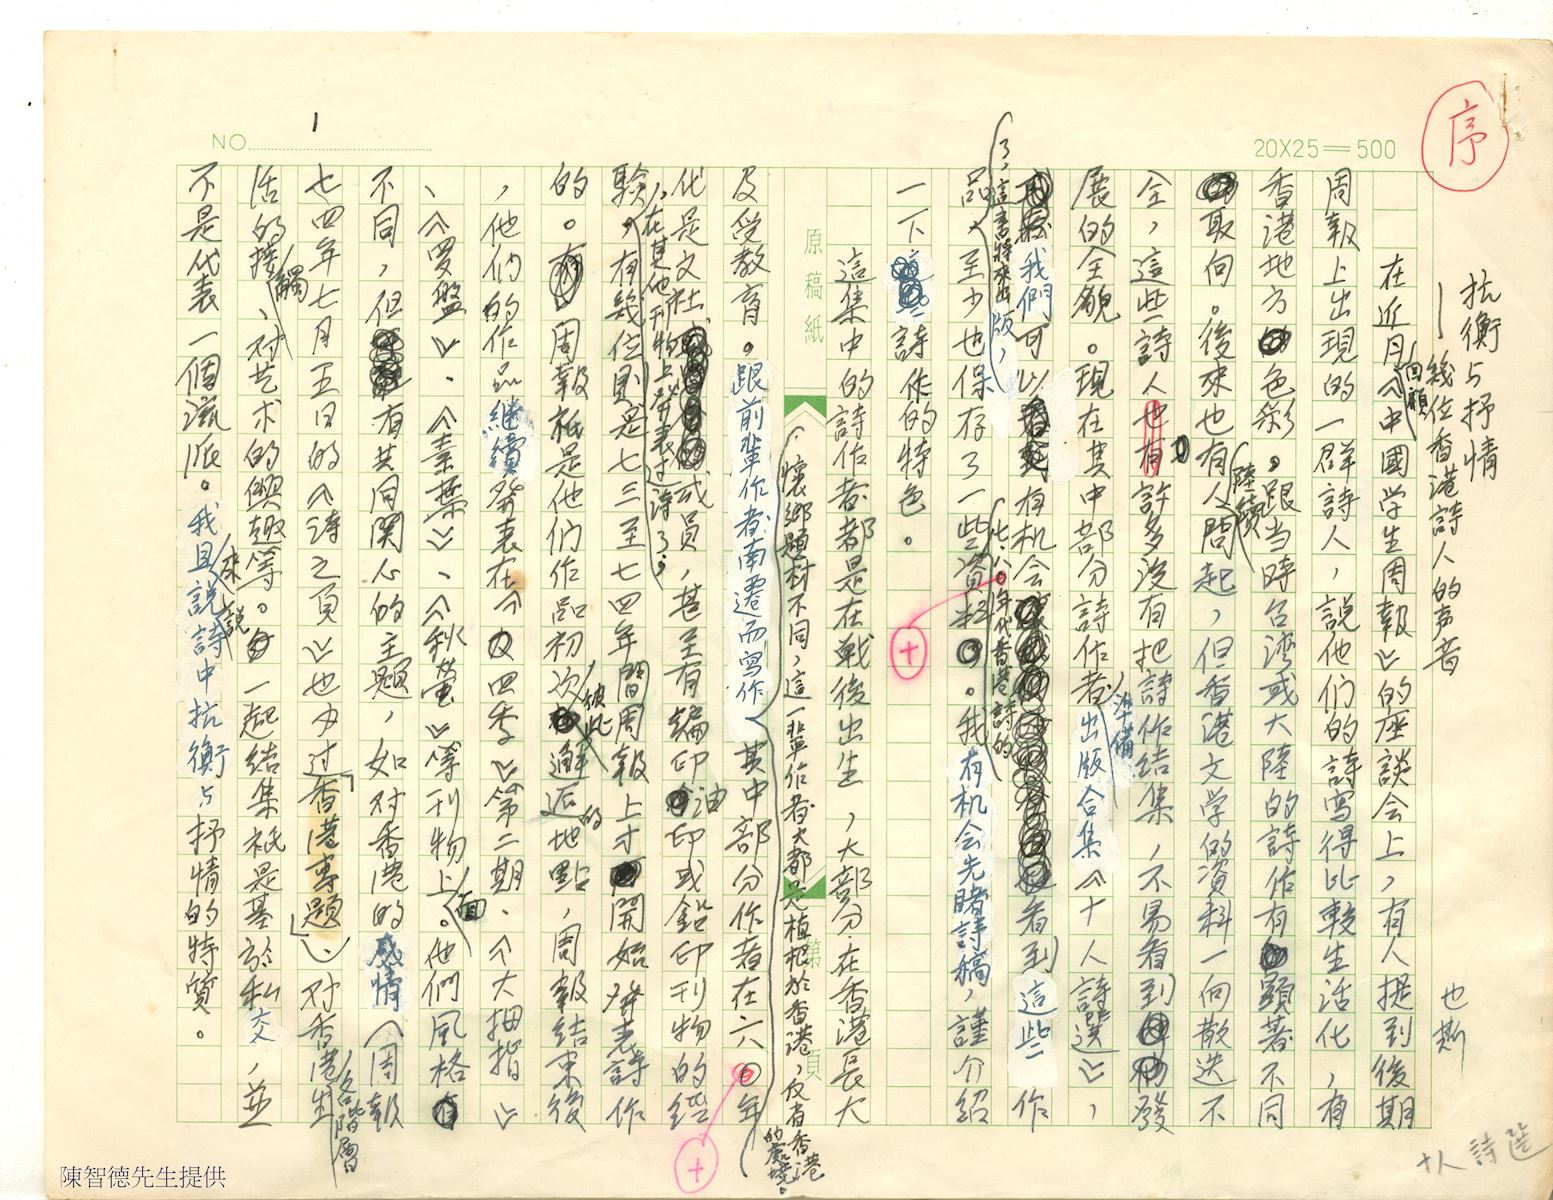 序
NO 1
20X25=500
抗衡与抒情
—幾位香港詩人的声音
也斯
在近月回顧《中國学生周報》的座談会上，有人提到後期
周報上出現的一群詩人，説他们的詩寫得比較生活化，有
香港地方色彩。跟当時台湾或大陸的詩作有顕著不同
取向。後來也有人陸續問起，但香港文学的資料一向散迭不
全，這些詩人也有許多没有把詩作結集，不易看到發
展的全貌。現在其中部分詩作者準備出版合集《十人詩選》，
我們可以有机会看到這些作
了，這書將來出版，
品，至少也保存了一些資料。我有机会先睹詩稿，謹介紹
七、八〇年代香港詩的
一下詩作的特色。
這集中的詩作者都是在戰後出生，大部分在香港長大
原稿紙
第 頁
，懷鄉題材不同，這一輩作者大都是植根於香港，反省香港的處境。
及受教育。跟前輩作者南遷而寫作其中部分作者在六〇年
代是文社成員，甚至有編印油印或鉛印刊物的經
，在其他刊物上發表過詩了；
驗。有幾位則是七三至七四年間周報上才開始發表詩作
的。周報衹是他们作品初次彼此邂逅的地點，周報結束後
，他们的作品継續發表在《四季》第二期、《大拇指》
、《罗盤》、《素葉》、《秋螢》等刊物上面。他們風格
不同，但有共同関心的主題，如对香港的感情（《周報
七四年七月五日的《诗之頁》也办过「香港專題」）、对香港生
各階層
活的接觸、对艺术的興趣等。一起結集衹是基於私交，並
不是代表一個流派。我且來説説詩中抗衡与抒情的特質。
十人詩選
陳智德先生提供